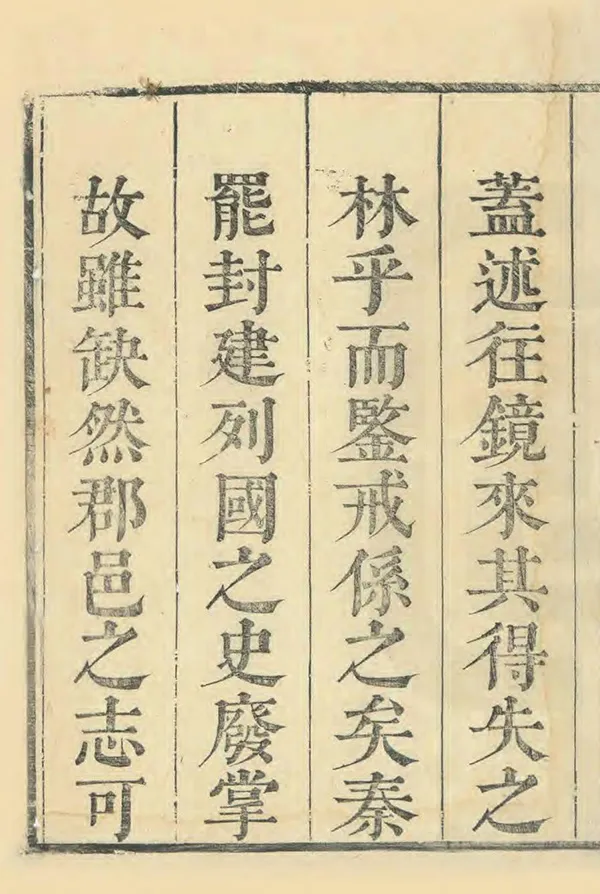 蓋述往鏡來其得失之
林乎而鑒戒係之矣秦
罷封建列國之史廢掌
故雖缺然郡邑之志可